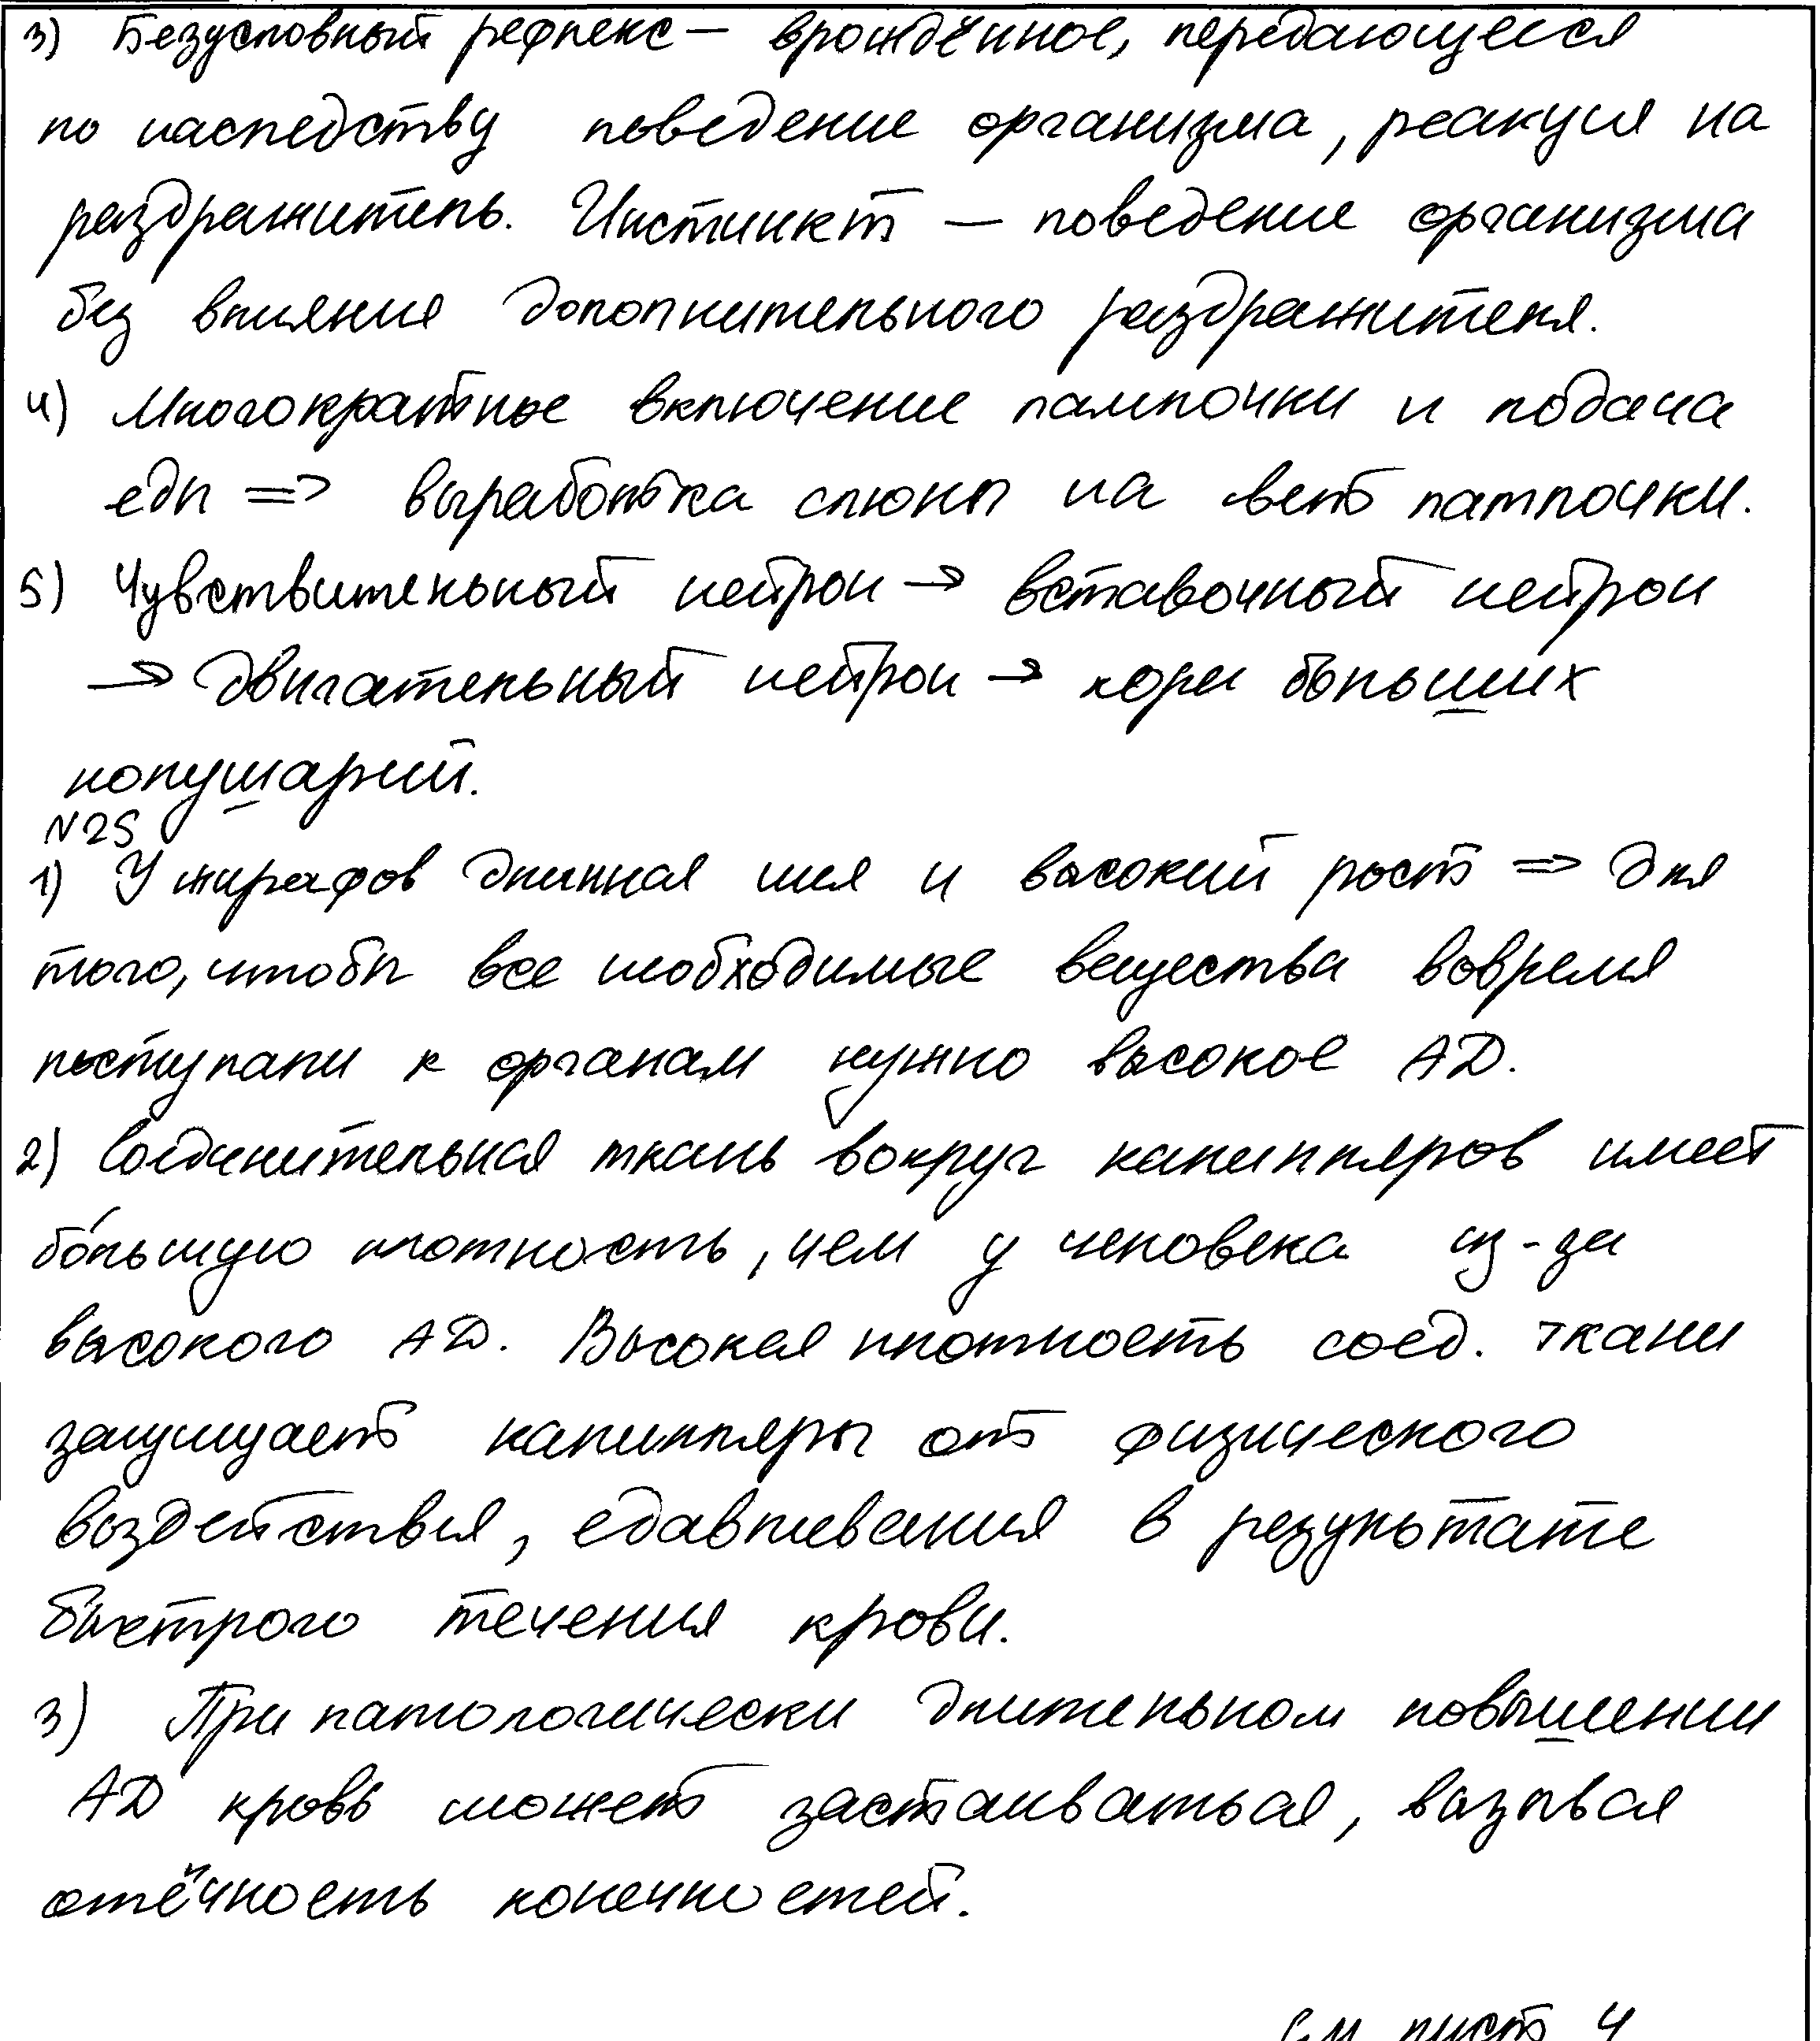 3) Безусловный рефлекс – врождённое, передающееся
по наследству поведение организма, реакция на
раздражитель. Инстинкт – поведение организма
без влияние дополнительного раздражителя.
4) Многократное включение лампочки и подача
еды => выработка слюны на свет лампочки.
5) Чувствительный нейрон → вставочный нейрон
→ двигательный нейрон → кора больших
полушарий.
N25
1) У жирафов длинная шея и высокий рост => для
того, чтобы все необходимые вещества вовремя
поступали к органам нужно высокое АД.
2) Соединительная ткань вокруг капилляров имеет
бо́льшую плотность, чем у человека из-за
высокого АД. Высокая плотность соед. ткани
защищает капилляры от физического
воздействия, сдавливания в результате
быстрого течения крови.
3) При патологически длительном повышении
АД кровь может застаиваться, вызывая
отёчность конечностей.
См лист 4